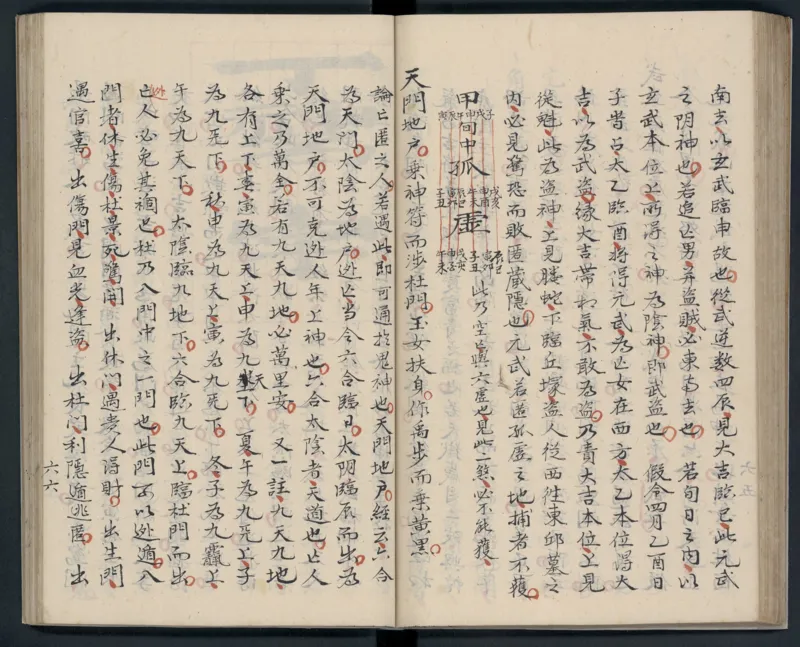 南去以玄武臨申故也從武逆数四辰見大吉臨巳此元武
之阴神也若追亡男并盗賊必東南去也若旬日之内以
玄武本位上所得之神為陰神即武盗也假令四月乙酉日
子時占太乙臨酉将得元武為亡女在西方太乙本位得大
吉以為武盗缘大吉帯和氣不敢為盗乃責大吉本位上見
從魁此為盗神上見騰蛇下臨丘塚盗人從西往東邱墓之
内必見驚恐而敗匿蔵隱也元武若匿孤虚之地捕者不獲
甲旬中孤虚
子戌申午辰寅
戌亥
申酉
午未
辰巳
寅卯
子丑
辰巳
寅卯
子丑
戌亥
申酉
午未
此乃空亡與六虚也見此二煞必不能獲
天門地户乗神符而涉杜門玉女扶身作禹步而乗黄黑
論亡匿之人若遇此即可通於鬼神也天門地户經云六合
為天門太陰為地户外亡当令六合臨日太阴臨辰而出為
天門地户不可克外人年上神也六合太陰者天道也亡人
乗之乃萬全若有九天九地必萬里安又一註九天九地
各有上下春寅為九天上申為九天下夏午為九天上子
為九天下秋申為九天上寅為九天下冬子為九天上
午為九天下太陰臨九地下六合臨九天上臨杜門而出
外亡人必免其禍也杜乃八門中之一門也此門可以外遁八
門者休生傷杜景死驚開出休门遇贵人得財出生門
遇官喜出傷門見血光逢盗出杜门利隱遁逃匿出
六六
六五